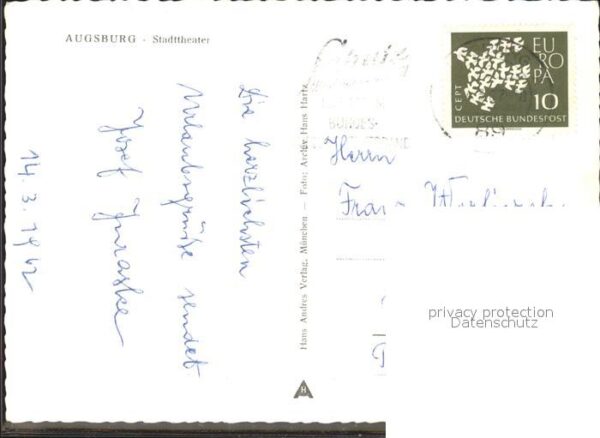 AUGSBURG - Stadttheater
Die herzlichsten
Urlaubsgrüße sendet
Josef Juraske
14.3.1962
Hans Andres Verlag, München — Foto: Archiv Hans Hartz
BUNDES-
Herrn
EUROPA
CEPT
10
DEUTSCHE BUNDESPOST
89
privacy protection
Datenschutz